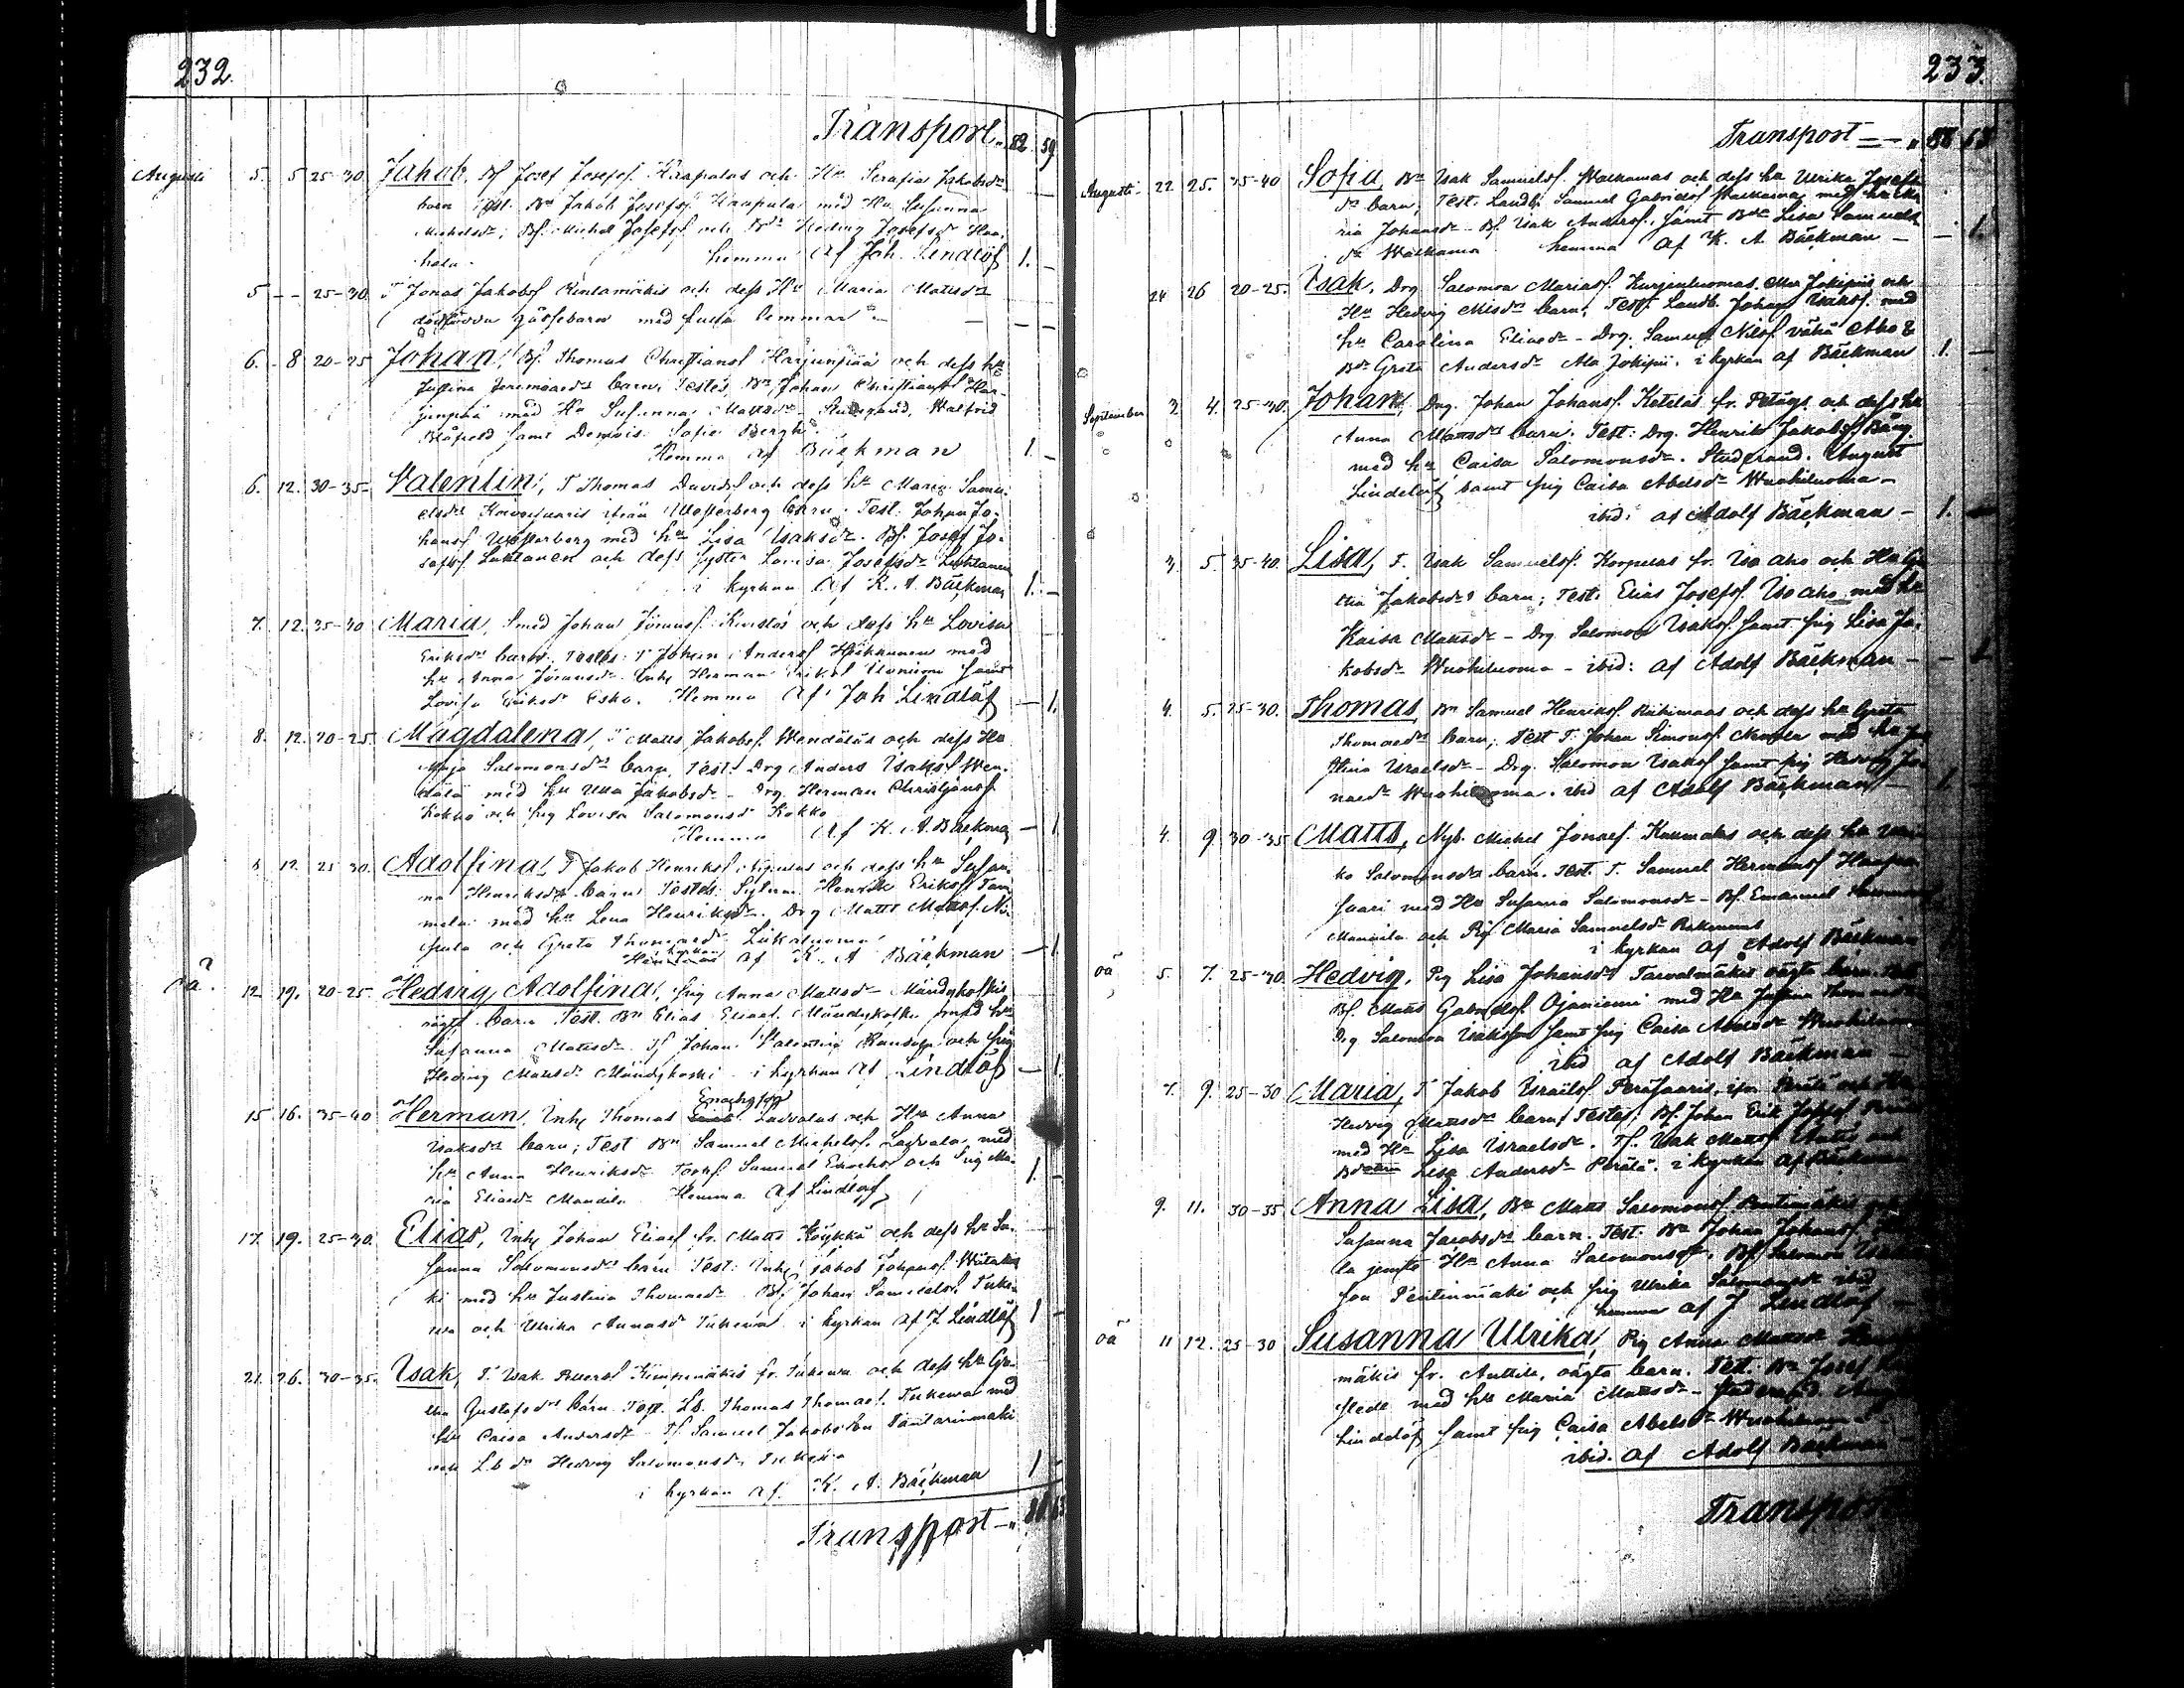 232.
Transport 82 59
Augusti 5. 5 25-30 Jakob, Bf Josef Josefs. Haapalas och Hu Serafia Jakobsdr
barn Test. Bn Jakob Josefss. Haapala med Hu Susanna
Michelsdr; Bf. Michel Josefsf och Bdr Hedvig Josefsdr Haa-
pala. hemma af Joh. Lindlöf 1. -
5 - - 25-30 T Jonas Jakobsf Rintamäkis och dess Hu Maria Mattsdr
dödfödda gossebarn med
6. 8 20-25 Johan, Bf. Thomas Christiansf Harjunpää och dess hu
Justina Jeremiaedr barn; Testes, Bn Johan Christiansf Har-
junpää med Hu Susanna Mattsdr - Studerand. Walfrid
Blåfield samt Demois. Sofie Bergh.
Hemma af Bäckman 1. -
6. 12. 30-35 Valentin, T Thomas Davidsf och dess hu Maria Samu-
elsdr Koivusaaris ifrån Westerberg barn. Test. Johan Jo-
hansf Westerberg med hu Lisa Isaksdr. Bf. Josef Jo-
sefsf. Luhtanen och dess syster Lovisa Josefsdr Luhtanen
i kyrkan af K. A. Bäckman 1. -
7. 12. 35-40 Maria, Smed Johan Jöransf. Kivelös och dess hu Lovisa
Eriksdr barn. Testes: T Johan Andersf Häkkinen med
hu Anna Jöransdr Inh. Herman Eriksf samt
Lovisa Eriksdr Esko. Hemma af Joh Lindlöf - 1.
8. 12. 20-25 Magdalena, T Matts Jakobsf. Wendäläs och dess Hu
Maja Salomonsdr barn, Test. Drg Anders Isaksf Wen-
dälä med hu Ulla Jakobsdr - Drg. Herman Christiansf
Kokko och Pig Lovisa Salomonsd Kokko
Hemma af K. A. Bäckman - 1
8. 12. 25-30. Adolfina, T Jakob Henriksf. och dess hu Susan-
na Henriksdr barn Testes: Sytn. Henrik Eriksf Tam-
mela med hu Lena Henriksdr. Drg Matts Mattsf. Ni-
pula och Greta Thomasdr Liikaluoma
kyrkan af K. A Bäckman - 1
oä? 12 19. 20-25. Hedvig Adolfina, Pig Anna Mattsdr Mändykoskis
oägta barn Test. Bn Elias Eliasf. Mändykoski med hu
Susanna Mattsdr Tf Johan Valentin och Pig
Hedvig Mattsdr Mändykoski i kyrkan af Lindlöf - 1
15 16. 35-40 Herman, Inh Thomas Enochsson Ladvalas och Hu Anna
Isaksdr barn; Test Bn Samuel Michelsf. Ladvala, med
hu Anna Henriksdr Torpf. Samuel Enochs och Pig Ma-
ria Eliasdr Mandila Hemma af Lindlöf 1. -
17. 19. 25-30. Elias, Inh Johan Eliasf fr. Matts Köykkä och dess hu Su-
sanna Salomonsdr barn Test: Inh Jakob Johansf Wiitaka
ki med hu Justina Thomasdr Bf Johan Samuelsf. Tuke-
wa och Ulrika Annasdr Tukewa i kyrkan af J Lindlöf 1 -
21. 26. 30-35. Isak, T. Isak fr. Tukewa och dess hu Gre-
tha Gustafsdr barn Test. Lb. Thomas Thomasf. Tukewa med
hu Caisa Andersdr Tf Samuel Jakobsson Pantarinmäki
och L.b dr Hedvig Salomonsdr Tukewa
i kyrkan af K. A. Bäckman 1 -
Transport
233.
Transport 88 63
Augusti 22. 25. 35-40 Sofia, Bn Isak Samuelsf. Walkamas och dess hu Ulrika Josefs
dr barn, Test. Landb. Samuel Gabrielsf Walkama med hu Ma
ria Johansdr - Bf. Isak Andersf. samt Bdr Lisa Samuels
dr Walkama hemma af K. A. Bäckman - 1.
24 26 20-25. Isak, Drg Salomon Mariasf. Kurjenluomas, Ala Jokipii och
Hu Hedvig Nilsdr barn, Test. Landb. Johan Isaksf. med
hu Carolina Eliasdr - Drg. Samuel Nilsf. vähä Aho &
Bdr Greta Andersdr Ala Jokipii. i kyrkan af Bäckman 1. -
September 3 4. 25-30. Johan, Drg. Johan Johansf. Ketelas fr. Petäys och dess hu
Anna Mattsdr barn. Test: Drg. Henrik Jakobsf Bäng
med hu Caisa Salomonsdr. Studerand. August
Lindelöf samt Pig Caisa Abelsdr Wuohiluoma -
ibid: af Adolf Bäckman - 1.
3. 5. 35-40. Lisa, T. Isak Samuelsf. Korpelas fr. Iso aho och Hu Gre
tha Jakobsdr barn; Test. Elias Josefsf. Iso aho med hu
Kaisa Mattsdr - Drg Salomon Isaksf samt Pig Lisa Ja-
kobsdr Wuohiluoma - ibid: af Adolf Bäckman - - 1
4. 5. 25-30. Thomas, Bn Samuel Henriksf. Riihimaas och dess hu Greta
Thomasdr barn; Test T. Johan Simonsf. med hu Ju
stina Israelsdr - Drg. Salomon Isaksf samt Pig Hedvig Jo
nasdr Wuohiluoma. ibid af Adolf Bäckman - 1.
4. 9. 30-35 Matts, Nyb. Michel Jonasf. och dess hu Ulri
ka Salomonsdr barn. Test. T. Samuel Hermansf Haapa
saari med Hu Susanna Salomonsdr - Bf. Emanuel
Mannila och Pig Maria Samuelsdr
i kyrkan af Adolf Bäckman
oä 5. 7. 25-30. Hedvig, Pig Lisa Johansdr oägta barn. Test
Bf. Matts Gabrielsf. Ojaniemi med Hu Justina Thomasdr
Drg Salomon Isaksson samt Pig Caisa Abelsdr Wuohiluoma
ibid af Adolf Bäckman
7. 9. 25-30 Maria, T Jakob Israelsf. Peräsaaris, ifr. Perälä och Hu
Hedvig Mattsdr barn; Testes, Bf. Johan Erik Josefsf
med Hu Lisa Israelsdr. Tf. Isak Mattsf.
Bdr Lisa Andersdr Perälä. i kyrkan af Bäckman
9. 11. 30-35 Anna Lisa, Bn Matts Salomonsf. Pentinmäkis
Susanna Jacobsdr barn. Test. Bn Johan Johansf.
la jemte Hu Anna Salomonsdr. Bf. Salomon Isaks
son Pentinmäki och Pig Ulrika Salomonsdr ibid
hemma af J Lindlöf
oä 11 12. 25-30 Susanna Ulrika, Pig Anna Mattsdr
mäkis fr. Anttila, oägta barn. Test. Bn Josef
med hu Maria Mattsdr - Studerand. August
Lindelöf samt Pig Caisa Abelsdr Wuohiluoma
ibid. af Adolf Bäckman
Transport